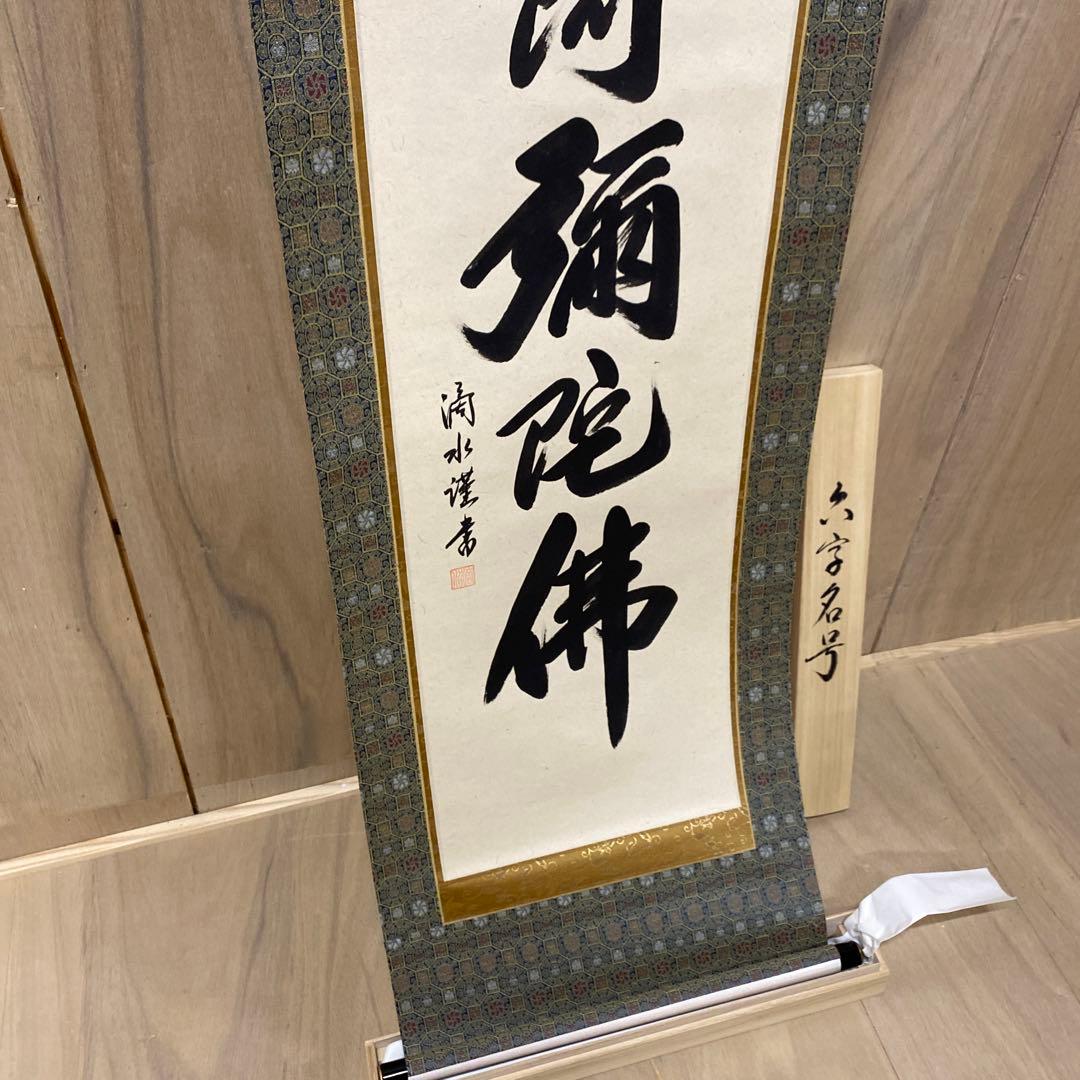 阿彌陀佛
滴水謹書
六字名号